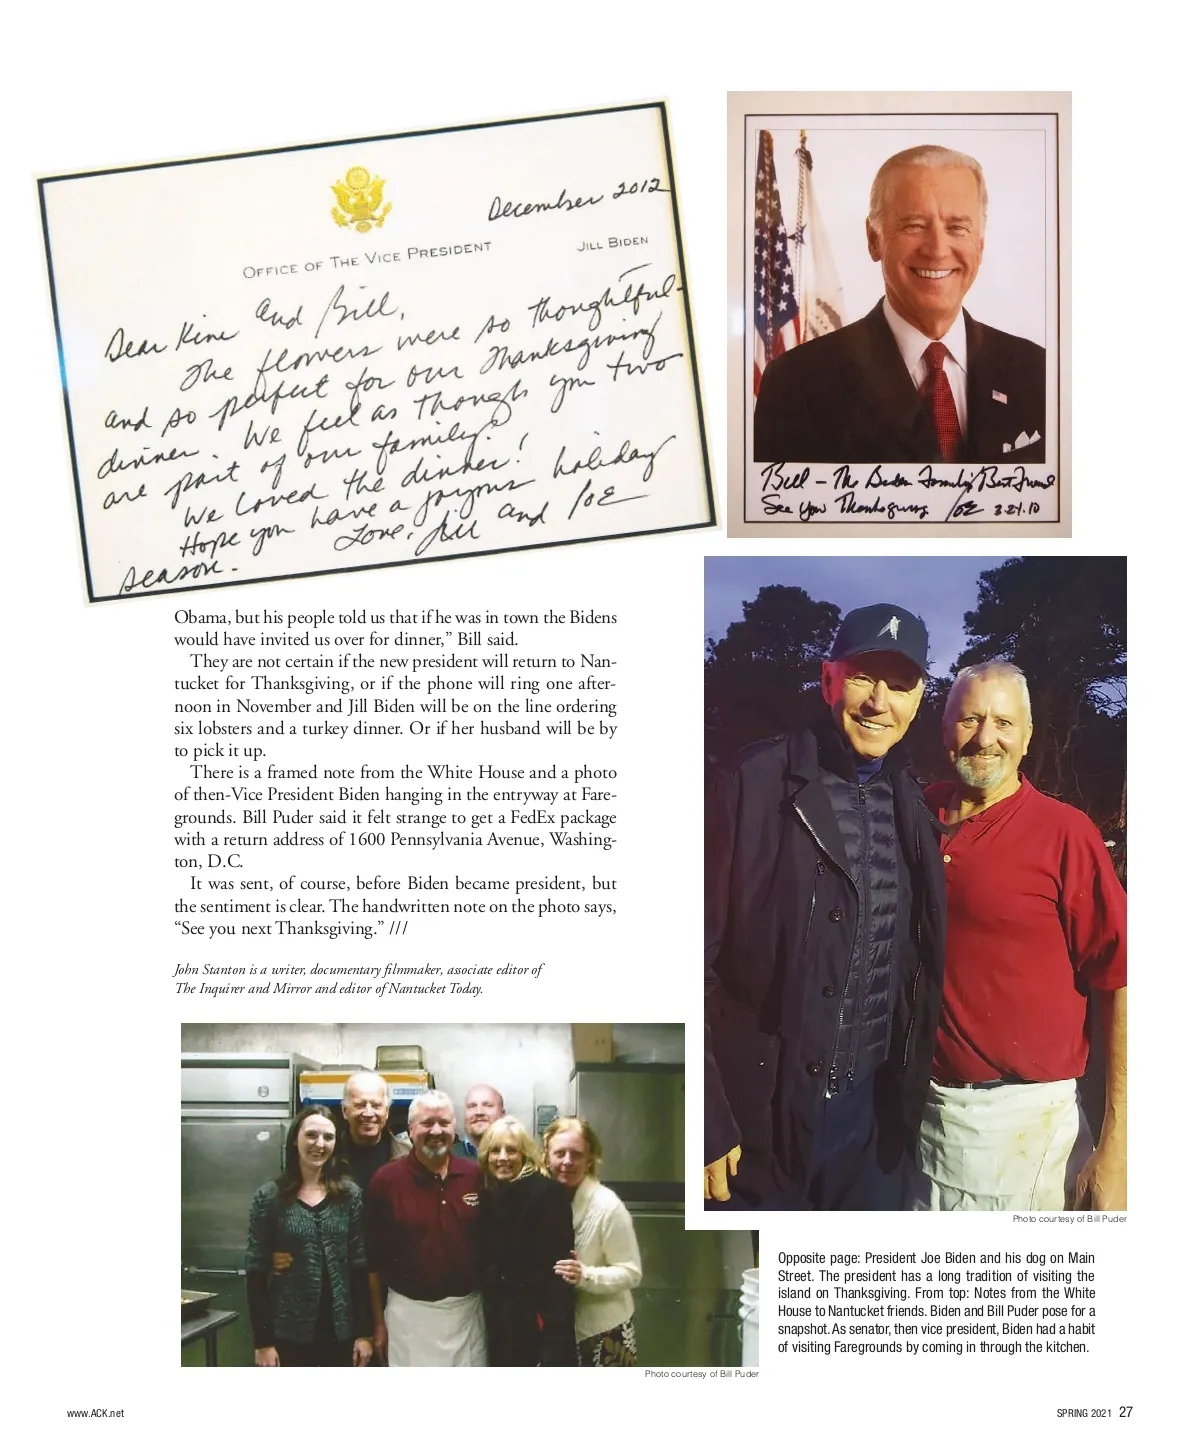 December 2012
OFFICE OF THE VICE PRESIDENT
JILL BIDEN
Dear Kim and Bill,
The flowers were so thoughtful -
and so perfect for our Thanksgiving
dinner. We feel as though you two
are part of our family.
We loved the dinner!
Hope you have a joyous holiday
season.
Love, Jill and Joe
Bill – The Biden Family's Best Friend
See you Thanksgiving Joe 3.24.10
Obama, but his people told us that if he was in town the Bidens
would have invited us over for dinner,” Bill said.
They are not certain if the new president will return to Nan-
tucket for Thanksgiving, or if the phone will ring one after-
noon in November and Jill Biden will be on the line ordering
six lobsters and a turkey dinner. Or if her husband will be by
to pick it up.
There is a framed note from the White House and a photo
of then-Vice President Biden hanging in the entryway at Fare-
grounds. Bill Puder said it felt strange to get a FedEx package
with a return address of 1600 Pennsylvania Avenue, Washing-
ton, D.C.
It was sent, of course, before Biden became president, but
the sentiment is clear. The handwritten note on the photo says,
“See you next Thanksgiving.” ///
John Stanton is a writer, documentary filmmaker, associate editor of
The Inquirer and Mirror and editor of Nantucket Today.
Photo courtesy of Bill Puder
Opposite page: President Joe Biden and his dog on Main
Street. The president has a long tradition of visiting the
island on Thanksgiving. From top: Notes from the White
House to Nantucket friends. Biden and Bill Puder pose for a
snapshot. As senator, then vice president, Biden had a habit
of visiting Faregrounds by coming in through the kitchen.
Photo courtesy of Bill Puder
www.ACK.net
SPRING 2021 27